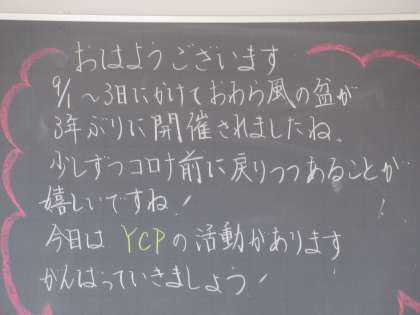 おはようございます
9/1～3日にかけておわら風の盆が
3年ぶりに開催されましたね。
少しずつコロナ前に戻りつつあることが
嬉しいですね！
今日は YCPの活動があります
がんばっていきましょう！